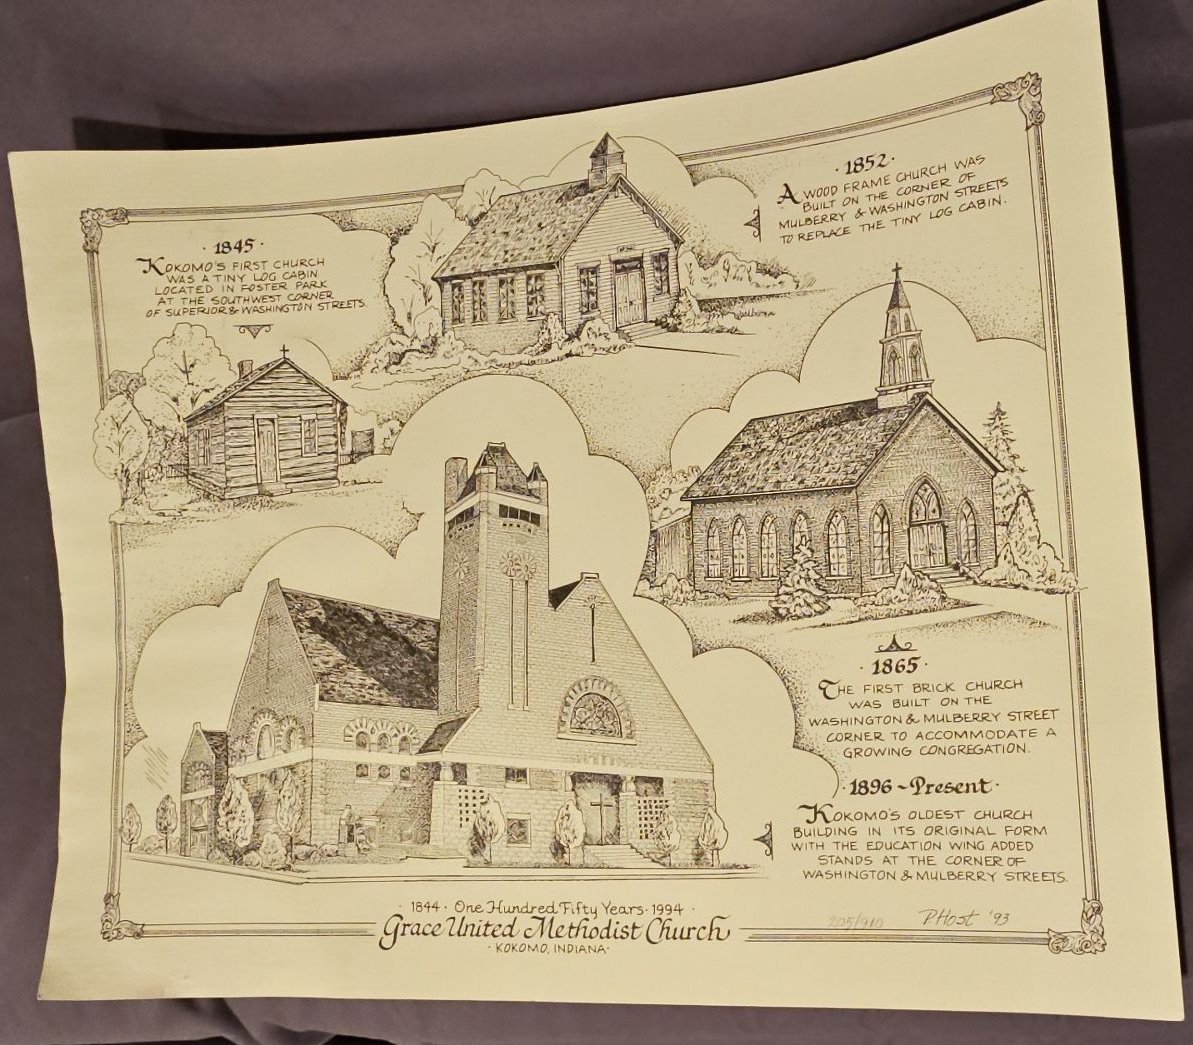 · 1845 ·
KOKOMO'S FIRST CHURCH
WAS A TINY LOG CABIN
LOCATED IN FOSTER PARK
AT THE SOUTHWEST CORNER
OF SUPERIOR & WASHINGTON STREETS.
· 1852 ·
A WOOD FRAME CHURCH WAS
BUILT ON THE CORNER OF
MULBERRY & WASHINGTON STREETS
TO REPLACE THE TINY LOG CABIN.
· 1865 ·
THE FIRST BRICK CHURCH
WAS BUILT ON THE
WASHINGTON & MULBERRY STREET
CORNER TO ACCOMMODATE A
GROWING CONGREGATION.
· 1896 ~ Present ·
KOKOMO'S OLDEST CHURCH
BUILDING IN ITS ORIGINAL FORM
WITH THE EDUCATION WING ADDED
STANDS AT THE CORNER OF
WASHINGTON & MULBERRY STREETS.
· 1844 · One Hundred Fifty Years · 1994 ·
Grace United Methodist Church
· KOKOMO, INDIANA ·
205/910
P. Host '93